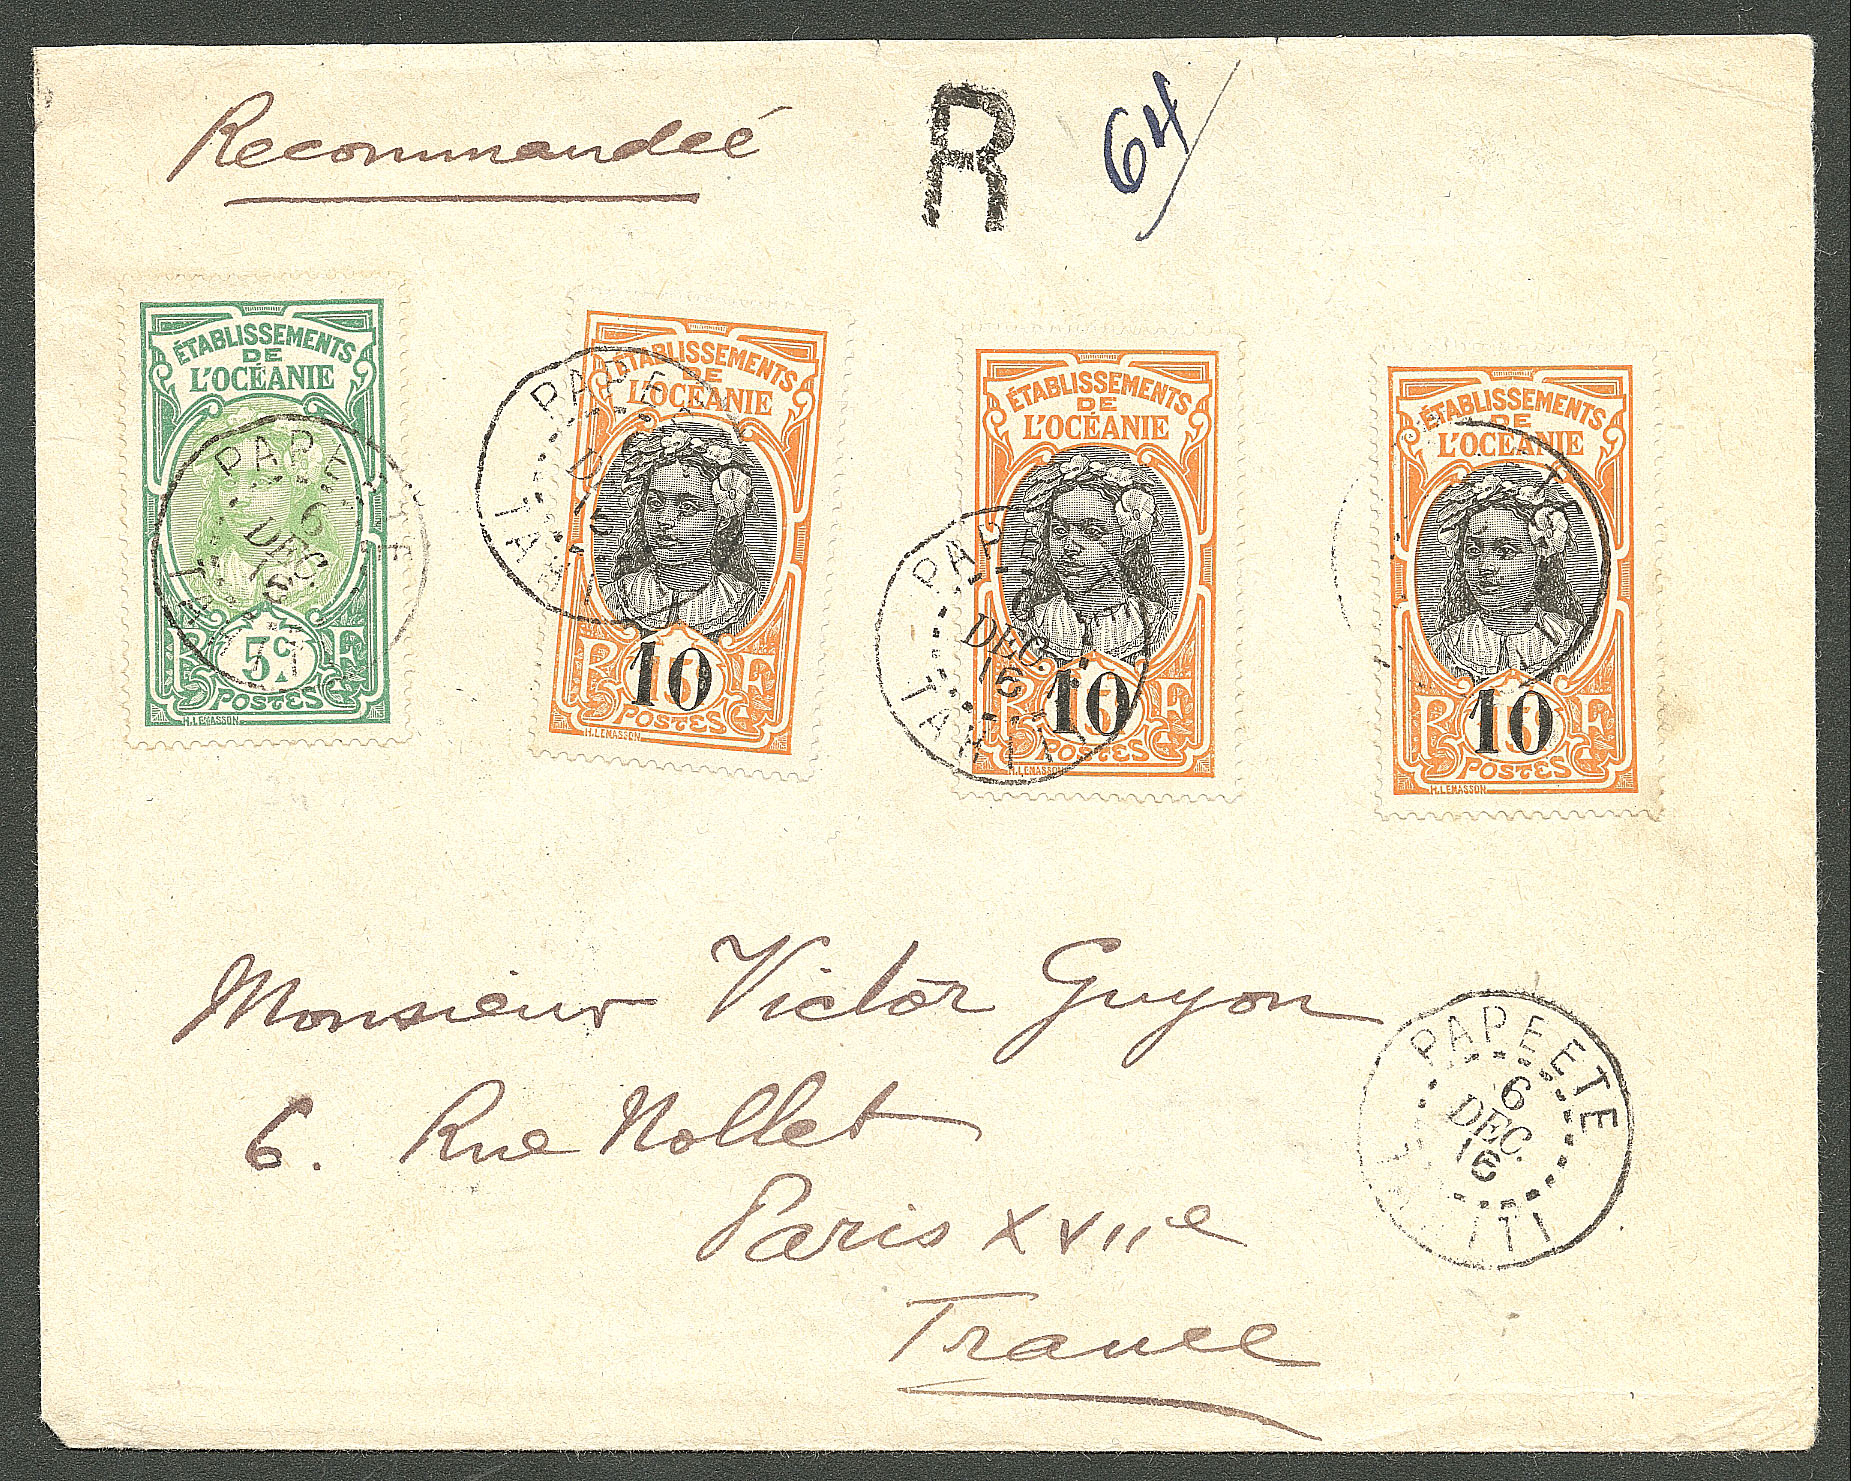 Recommandeé
R
64
ÉTABLISSEMENTS
DE
L'OCÉANIE
R F
5c
POSTES
H.LEMASSON
PAPEETE
6
DEC.
16
TAHITI
ÉTABLISSEMENTS
DE
L'OCÉANIE
R F
10
POSTES
H.LEMASSON
TAHITI
ÉTABLISSEMENTS
DE
L'OCÉANIE
R F
10
POSTES
H.LEMASSON
DEC.
16
TAHITI
ÉTABLISSEMENTS
DE
L'OCÉANIE
R F
10
POSTES
H.LEMASSON
Monsieur Victor Guyon
6. Rue Nollet
Paris XVIIe
France
PAPEETE
6
DEC.
16
TAHITI